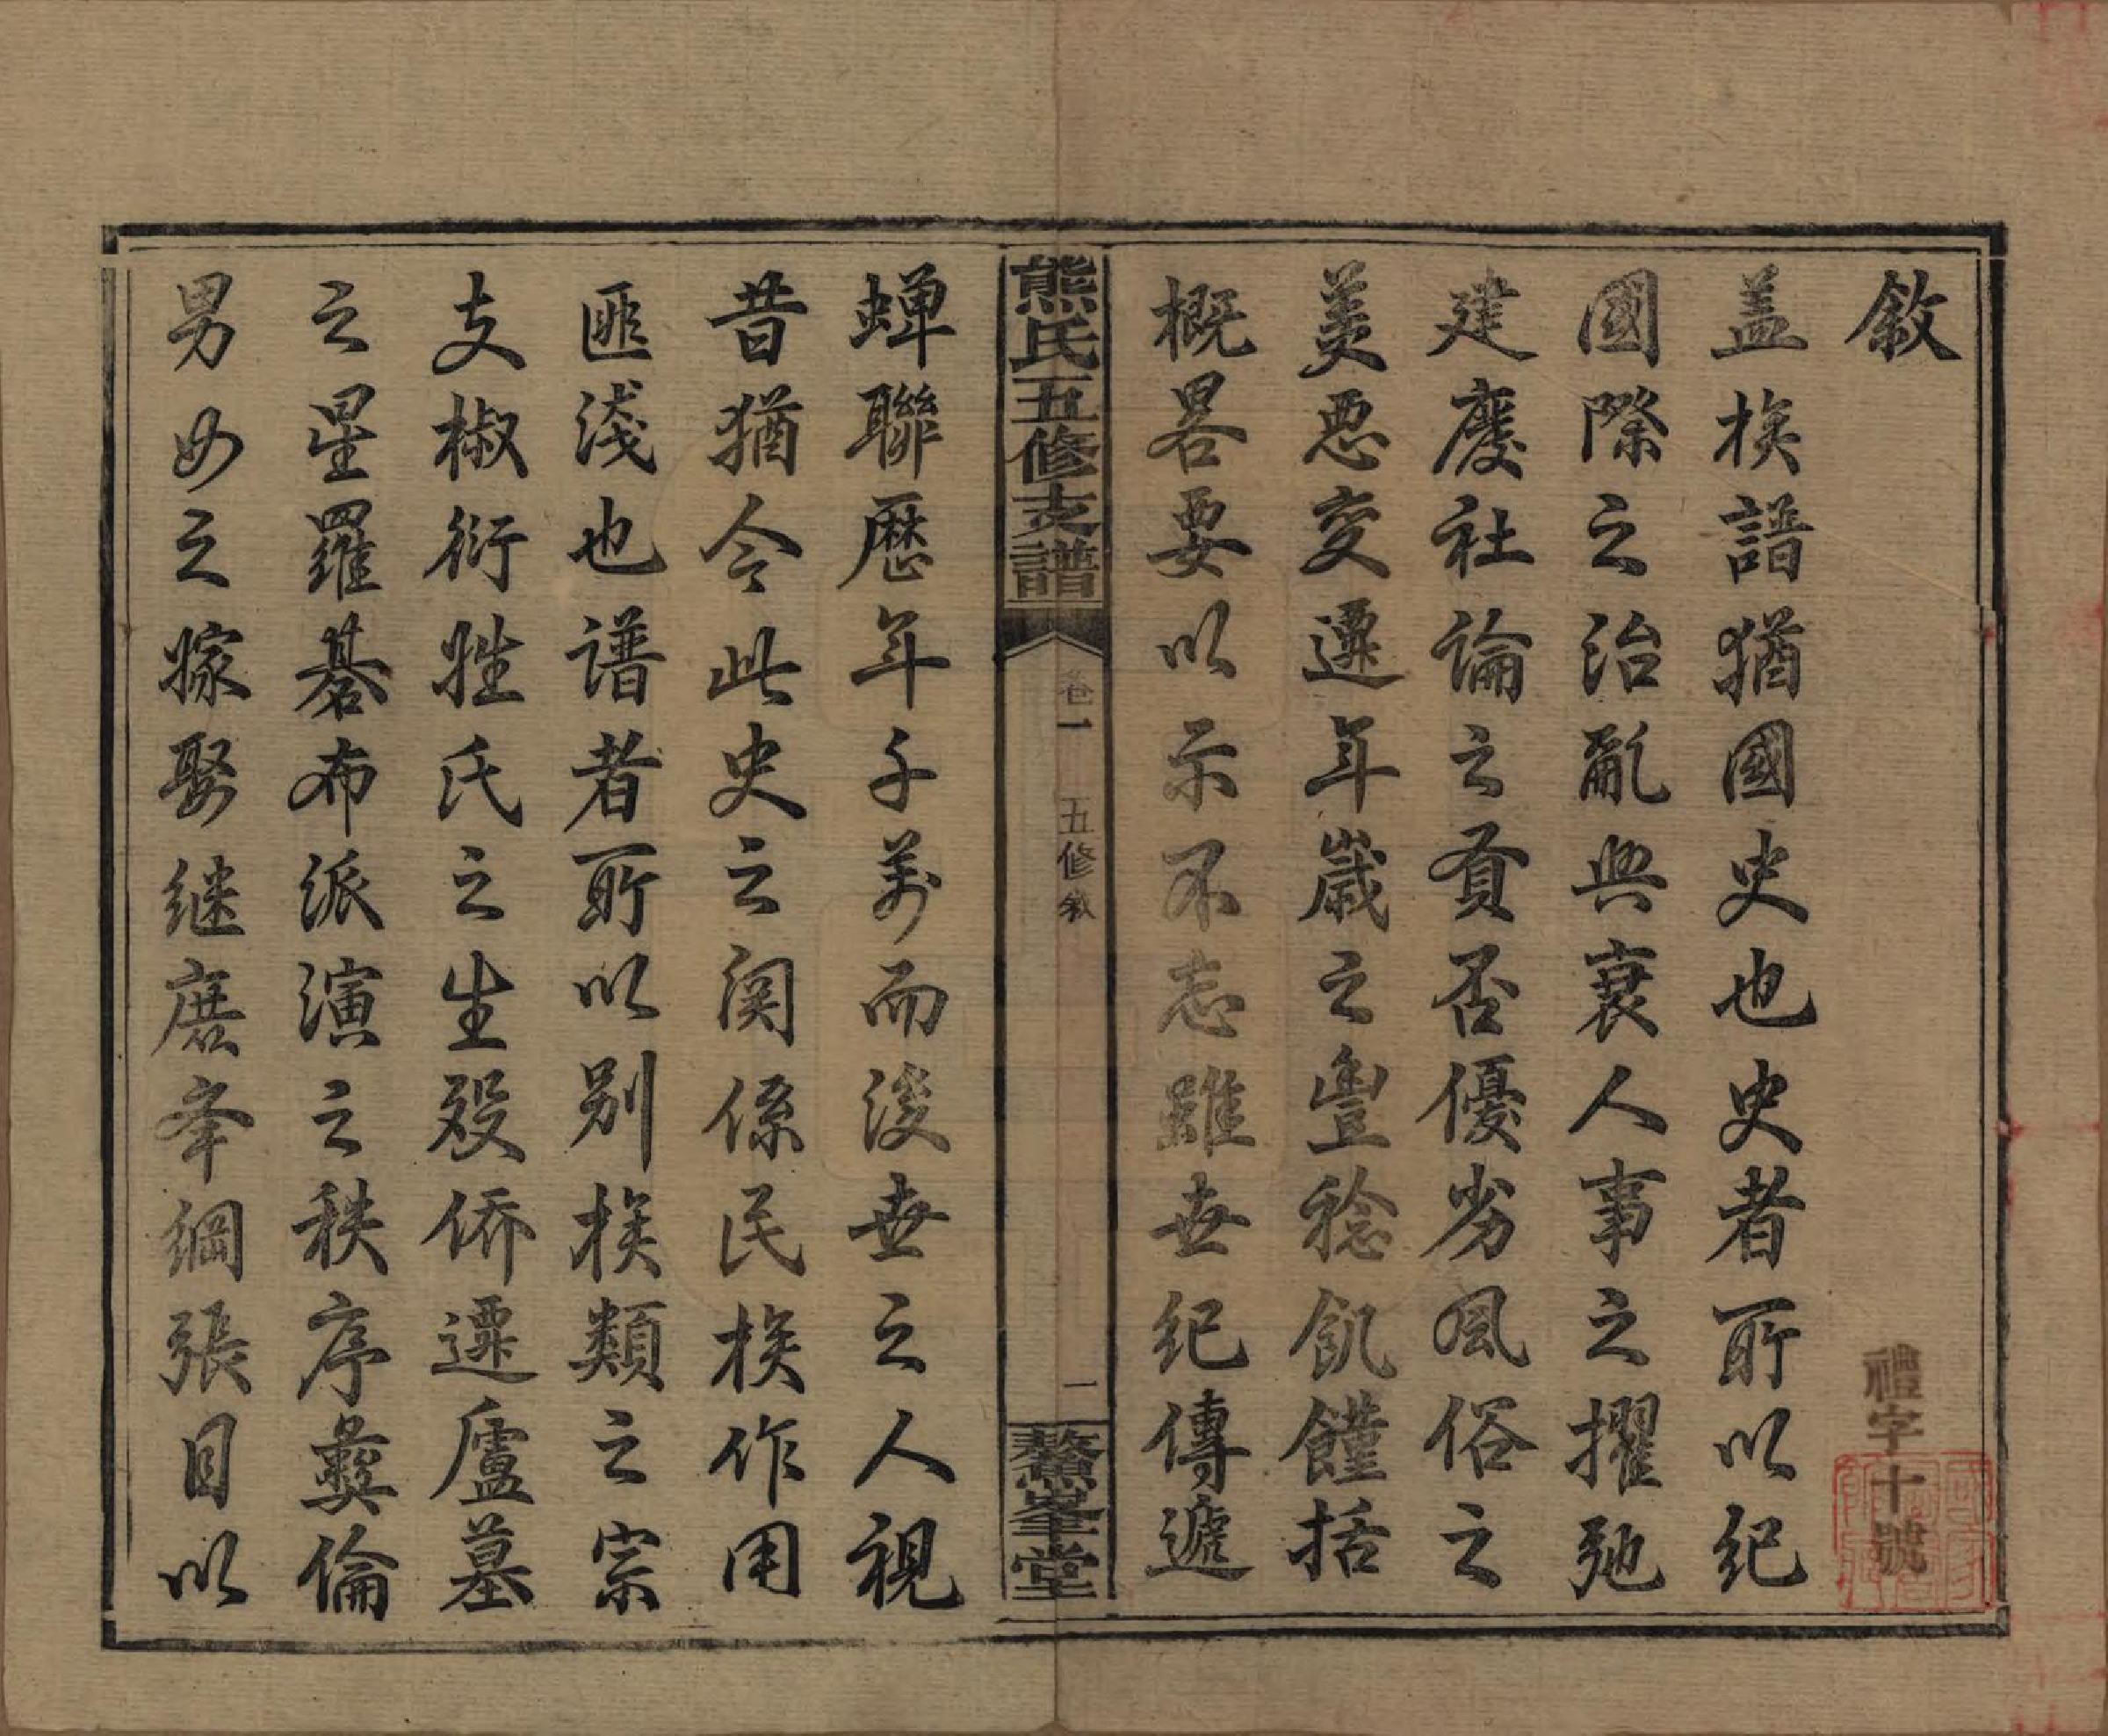 敘
盖族譜猶國史也史者所以紀
國際之治亂興衰人事之擢弛
建廢社論之賁否優劣風俗之
美惡変遷年歲之豊稔飢饉括
概畧要以示不忘雖世紀傳遞
熊氏五修支譜
卷一
五修敘
一
鰲峯堂
蝉聯歷年千萬而後世之人視
昔猶今此史之関係民族作用
匪淺也譜者所以别族類之宗
支椒衍甡氏之生殁侨遷廬墓
之星羅碁布派演之秩序彝倫
男女之嫁娶继磨夆綱張目以
禮字十號